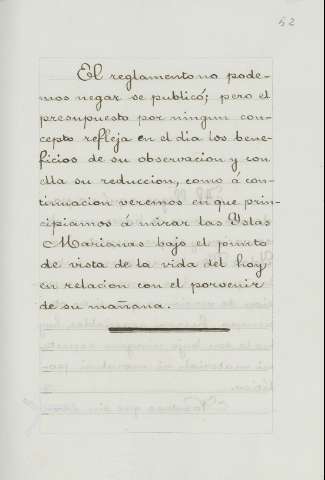 52
El reglamento no pode-
mos negar se publicó; pero el
presupuesto por ningun con-
cepto refleja en el dia los bene-
ficios de su observacion y con
ella su reduccion, como á con-
tinuacion veremos en que prin-
cipiamos á mirar las Yslas
Marianas bajo el punto
de vista de la vida del hoy
en relacion con el porvenir
de su mañana.